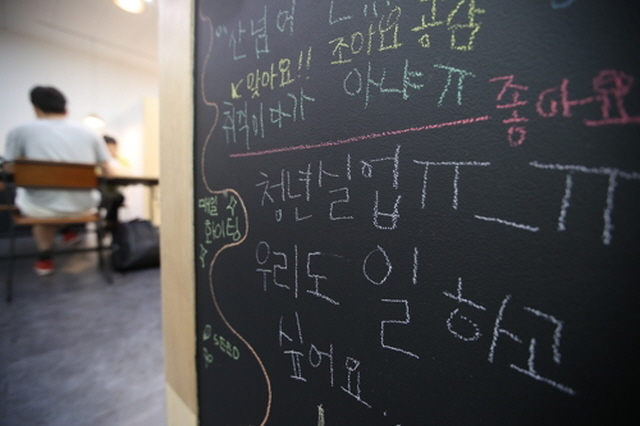 "산념어
조아요 공감
↙맞아요!!
아냐ㅠ
취직이다가
좋아요
청년실업 ㅠ_ㅠ
매일
화이팅
우리도 일하고
싶어요